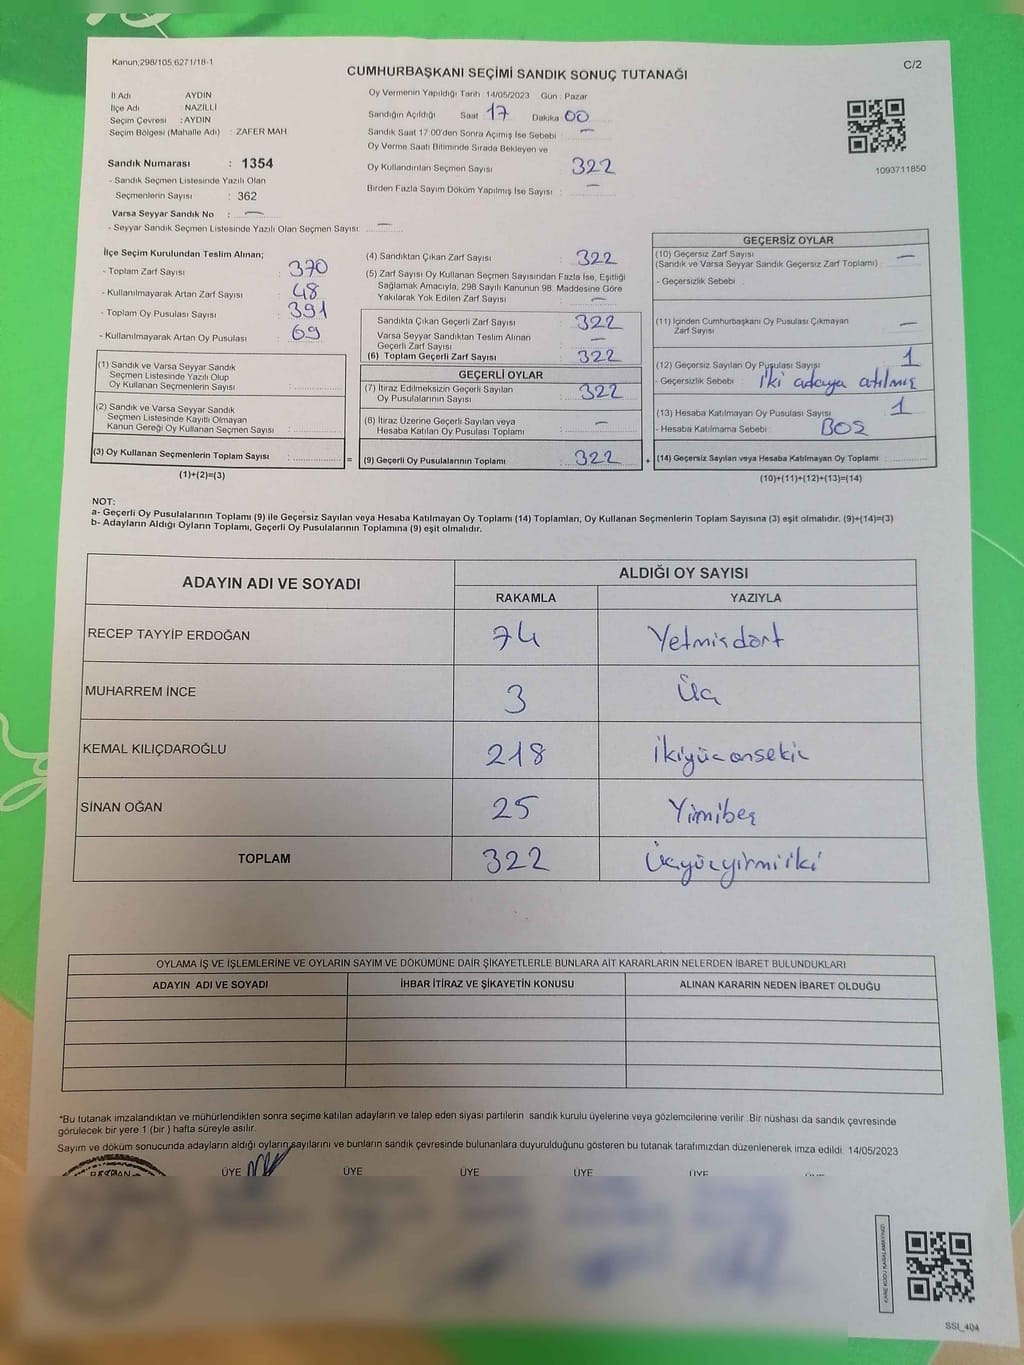 Kanun;298/105,6271/18-1
C/2
CUMHURBAŞKANI SEÇİMİ SANDIK SONUÇ TUTANAĞI
İl Adı AYDIN
İlçe Adı NAZİLLİ
Seçim Çevresi : AYDIN
Seçim Bölgesi (Mahalle Adı) : ZAFER MAH
Sandık Numarası : 1354
- Sandık Seçmen Listesinde Yazılı Olan
Seçmenlerin Sayısı : 362
Varsa Seyyar Sandık No : —
- Seyyar Sandık Seçmen Listesinde Yazılı Olan Seçmen Sayısı: —
Oy Vermenin Yapıldığı Tarih : 14/05/2023 Gün : Pazar
Sandığın Açıldığı Saat 17 Dakika 00
Sandık Saat 17:00'den Sonra Açımış İse Sebebi : —
Oy Verme Saati Bitiminde Sırada Bekleyen ve
Oy Kullandırılan Seçmen Sayısı 322
Birden Fazla Sayım Döküm Yapılmış İse Sayısı : —
1093711850
İlçe Seçim Kurulundan Teslim Alınan;
- Toplam Zarf Sayısı : 370
- Kullanılmayarak Artan Zarf Sayısı : 48
- Toplam Oy Pusulası Sayısı : 391
- Kullanılmayarak Artan Oy Pusulası : 69
(1) Sandık ve Varsa Seyyar Sandık
Seçmen Listesinde Yazılı Olup
Oy Kullanan Seçmenlerin Sayısı :
(2) Sandık ve Varsa Seyyar Sandık
Seçmen Listesinde Kayıtlı Olmayan
Kanun Gereği Oy Kullanan Seçmen Sayısı :
(3) Oy Kullanan Seçmenlerin Toplam Sayısı :
(1)+(2)=(3)
(4) Sandıktan Çıkan Zarf Sayısı : 322
(5) Zarf Sayısı Oy Kullanan Seçmen Sayısından Fazla İse, Eşitliği
Sağlamak Amacıyla, 298 Sayılı Kanunun 98. Maddesine Göre
Yakılarak Yok Edilen Zarf Sayısı : —
Sandıkta Çıkan Geçerli Zarf Sayısı : 322
Varsa Seyyar Sandıktan Teslim Alınan
Geçerli Zarf Sayısı : —
(6) Toplam Geçerli Zarf Sayısı : 322
GEÇERLİ OYLAR
(7) İtiraz Edilmeksizin Geçerli Sayılan
Oy Pusulalarının Sayısı : 322
(8) İtiraz Üzerine Geçerli Sayılan veya
Hesaba Katılan Oy Pusulası Toplamı : —
= (9) Geçerli Oy Pusulalarının Toplamı : 322 +
GEÇERSİZ OYLAR
(10) Geçersiz Zarf Sayısı
(Sandık ve Varsa Seyyar Sandık Geçersiz Zarf Toplamı) : —
- Geçersizlik Sebebi :
(11) İçinden Cumhurbaşkanı Oy Pusulası Çıkmayan
Zarf Sayısı : —
(12) Geçersiz Sayılan Oy Pusulası Sayısı : 1
- Geçersizlik Sebebi : İki adaya atılmış
(13) Hesaba Katılmayan Oy Pusulası Sayısı : 1
- Hesaba Katılmama Sebebi : BOŞ
(14) Geçersiz Sayılan veya Hesaba Katılmayan Oy Toplamı :
(10)+(11)+(12)+(13)=(14)
NOT:
a- Geçerli Oy Pusulalarının Toplamı (9) ile Geçersiz Sayılan veya Hesaba Katılmayan Oy Toplamı (14) Toplamları, Oy Kullanan Seçmenlerin Toplam Sayısına (3) eşit olmalıdır. (9)+(14)=(3)
b- Adayların Aldığı Oyların Toplamı, Geçerli Oy Pusulalarının Toplamına (9) eşit olmalıdır.
ADAYIN ADI VE SOYADI ALDIĞI OY SAYISI
RAKAMLA YAZIYLA
RECEP TAYYİP ERDOĞAN 74 Yetmişdört
MUHARREM İNCE 3 Üç
KEMAL KILIÇDAROĞLU 218 İkiyüz onsekiz
SİNAN OĞAN 25 Yirmibeş
TOPLAM 322 Üçyüzyirmiiki
OYLAMA İŞ VE İŞLEMLERİNE VE OYLARIN SAYIM VE DÖKÜMÜNE DAİR ŞİKAYETLERLE BUNLARA AİT KARARLARIN NELERDEN İBARET BULUNDUKLARI
ADAYIN ADI VE SOYADI İHBAR İTİRAZ VE ŞİKAYETİN KONUSU ALINAN KARARIN NEDEN İBARET OLDUĞU
*Bu tutanak imzalandıktan ve mühürlendikten sonra seçime katılan adayların ve talep eden siyasi partilerin sandık kurulu üyelerine veya gözlemcilerine verilir. Bir nüshası da sandık çevresinde
görülecek bir yere 1 (bir ) hafta süreyle asılır.
Sayım ve döküm sonucunda adayların aldığı oyların sayılarını ve bunların sandık çevresinde bulunanlara duyurulduğunu gösteren bu tutanak tarafımızdan düzenlenerek imza edildi. 14/05/2023
ÜYE ÜYE ÜYE ÜYE ÜYE
SSİ_404